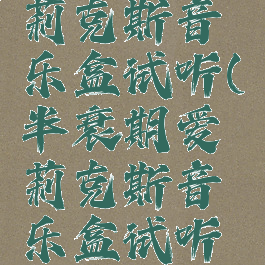 莉克斯音
乐盒试听(
半衰期爱
莉克斯音
乐盒试听